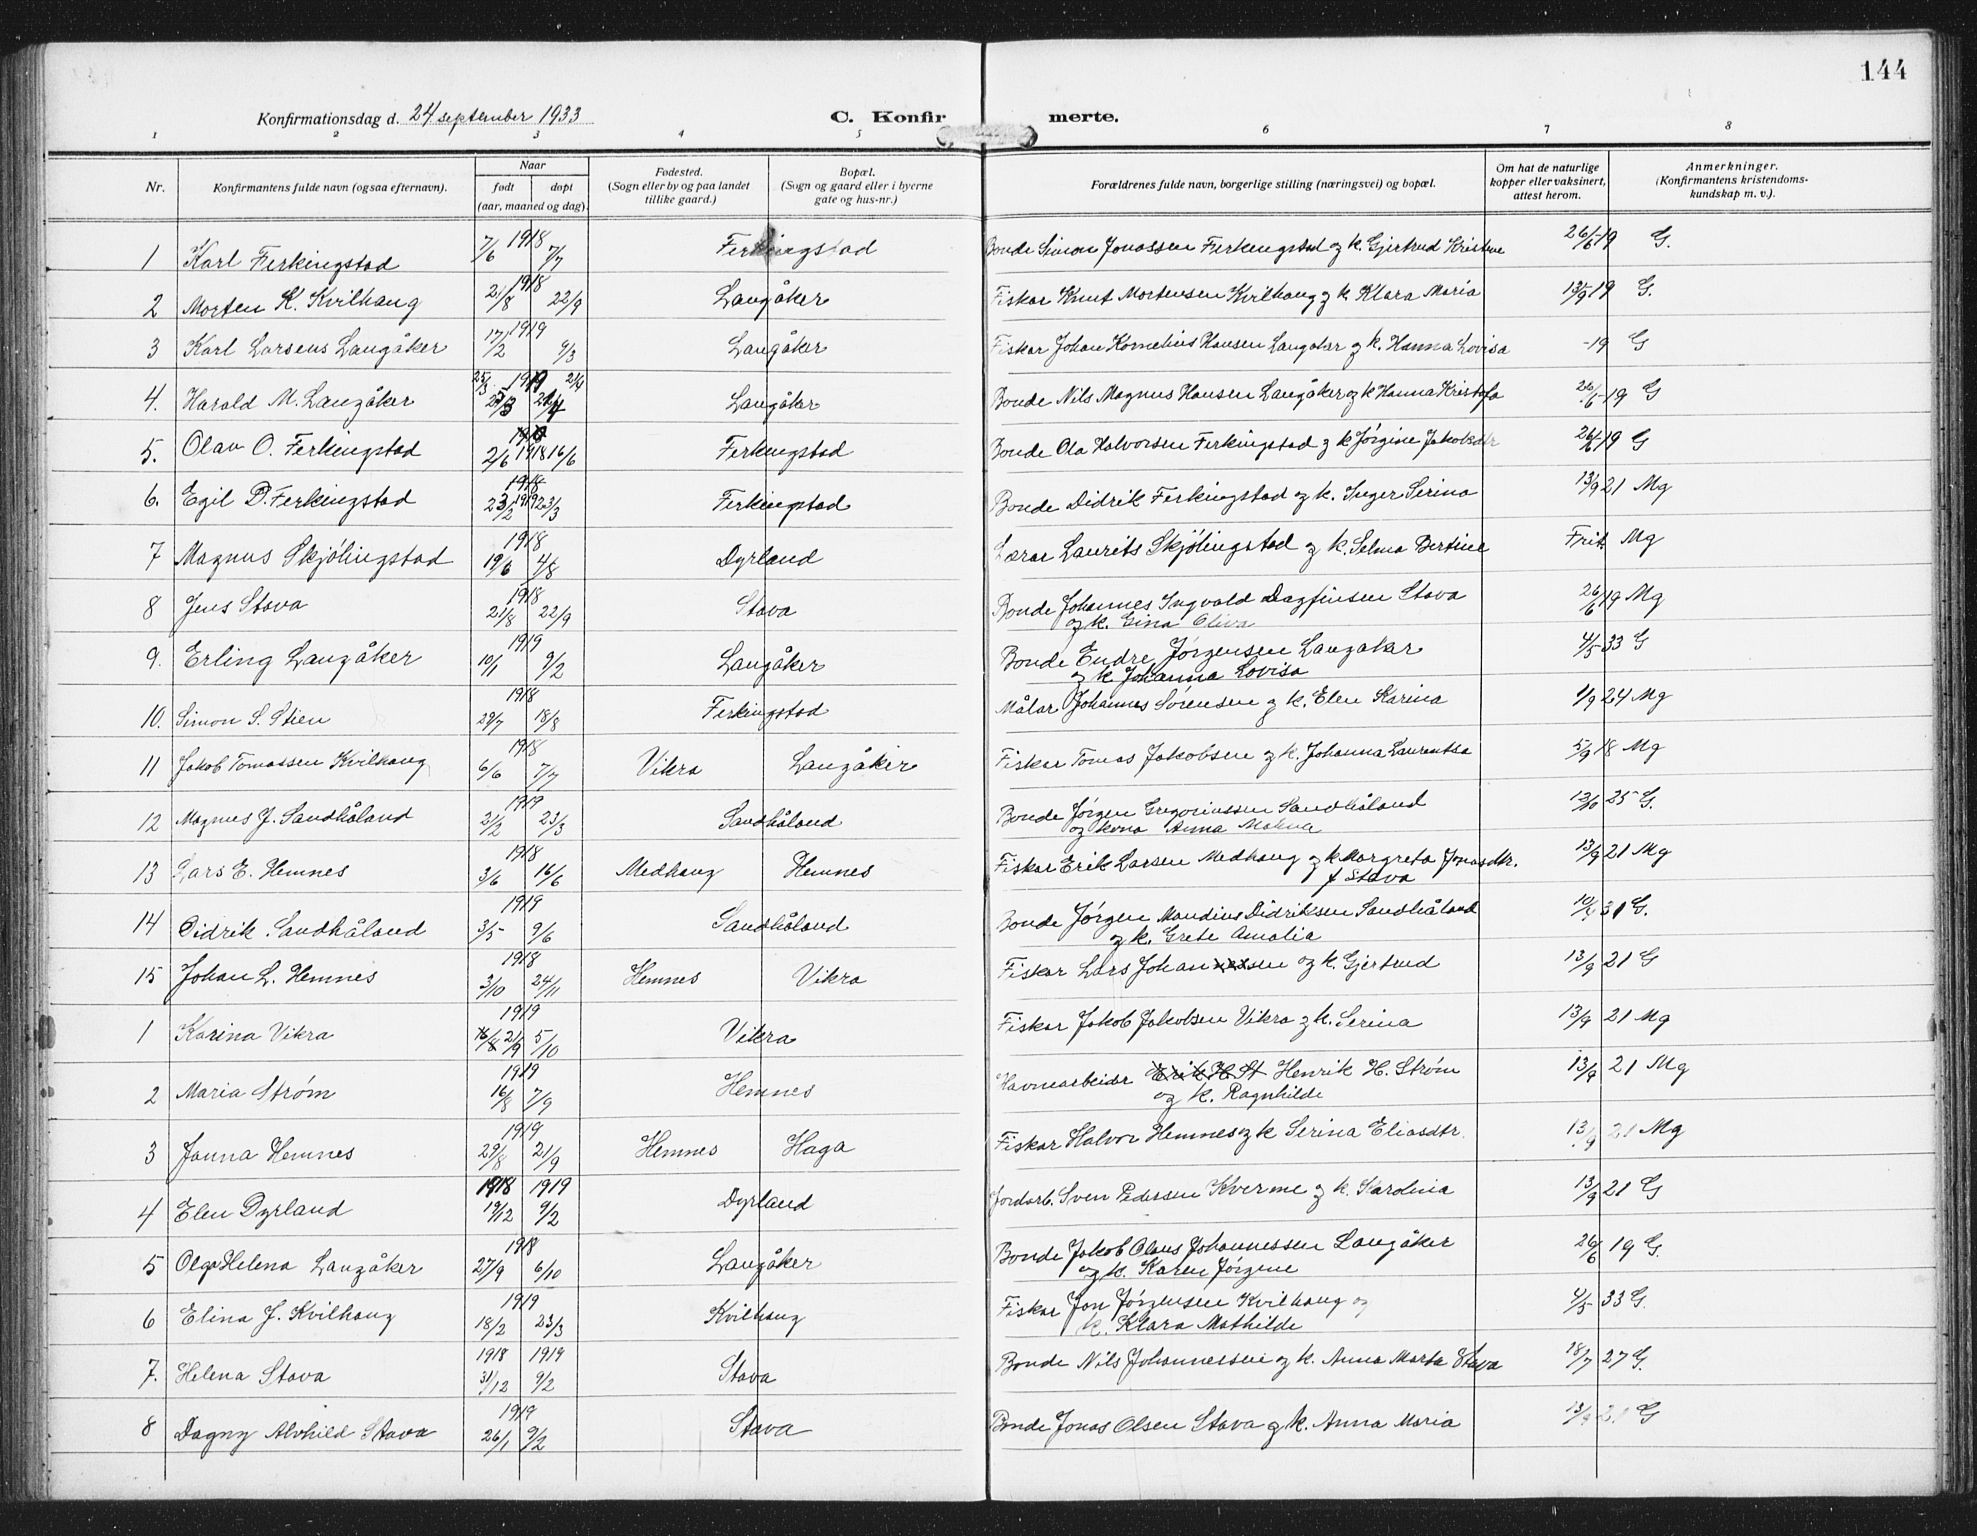 144
Konfirmationsdag d. 24 september 1933 C. Konfirmerte.
1 2 3 4 5 6 7 8
Nr. Konfirmantens fulde navn (ogsaa efternavn). Naar født døpt (aar, maaned og dag). Fødested. (Sogn eller by og paa landet tillike gaard.) Bopæl. (Sogn og gaard eller i byerne gate og hus-nr.) Forældrenes fulde navn, borgerlige stilling (næringsvei) og bopæl. Om hat de naturlige kopper eller vaksinert, attest herom. Anmerkninger. (Konfirmantens kristendomskundskap m. v.).
1 Karl Ferkingstad 7/6 1918 7/7 Ferkingstad Bonde Simon Jonassen Ferkingstad og k. Gjertrud Kristine 26/6 19 G.
2 Morten K. Kvilhaug 21/8 1918 22/9 Langåker Fiskar Knut Mortensen Kvilhaug og k Klara Maria 19 G.
3 Karl Larsens Langåker 17/2 1919 9/3 Langåker Fiskar Johan Kornelius Hansen Langaker og k. Hanna Lovisa -19 G
4. Harald M. Langåker 25/3 1919 21/4 Langåker Bonde Nils Magnus Hansen Langåker og k Hanna Kristofa 26/6 19 G
5. Olav O. Ferkingstad 2/6 1918 16/6 Ferkingstad Bonde Ola Halvorsen Ferkingstad og k Jørgine Jakobsdtr 26/6 19 G
6. Egil D. Ferkingstad 23/2 1919 23/3 Ferkingstad Bonde Didrik Ferkingstad og k. Inger Serina 13/9 21 Mg
7 Magnus Skjølingstad 1918 19/6 4/8 Dyrland Lærar Laurits Skjølingstad og k. Selma Bertine Frit. Mg
8 Jens Stava 1918 21/8 22/9 Stava Bonde Johannes Ingvald Dagfinsen Stava
og k. Gina Oliva 26/6 19 Mg
9. Erling Langåker 1919 10/1 9/2 Langåker Bonde Endre Jørgensen Langaker
og k Johanna Lovisa 4/5 33 G
10. Simon S. Stien 1918 29/7 18/8 Ferkingstad Målar Johannes Sørensen og k. Elen Karina 1/9 24 Mg
11 Jakob Tomassen Kvilhaug 1918 6/6 7/7 Vikra Langåker Fiskar Tomas Jakobsen og k. Johanna Laurentsa 5/9 18 Mg
12 Magnus J. Sandhåland 1919 21/2 23/3 Sandhåland Bonde Jørgen Gregoriussen Sandhåland
og kona Anna Malena 12/10 25 G.
13 Lars E. Hemnes 1918 3/6 16/6 Medhaug Hemnes Fiskar Erik Larsen Medhaug og k Margreta Jonasdtr.
f Stava 13/9 21 Mg
14 Didrik Sandhåland 1919 3/5 9/6 Sandhåland Bonde Jørgen Mandius Didriksen Sandhåland
og k. Grete Amalia 31 G.
15 Johan L. Hemnes 1918 3/10 24/11 Hemnes Vikra Fiskar Lars Johansen og k. Gjertrud 13/9 21 G
1 Karina Vikra 1919 21/9 5/10 Vikra Fiskar Jakob Jakobsen Vikra og k. Serina 13/9 21 Mg
2 Maria Strøm 1919 16/8 7/9 Hemnes Havnearbeider Erik H St Henrik H. Strøm
og k. Ragnhilde 13/9 21 Mg
3 Janna Hemnes 1919 29/8 21/9 Hemnes Haga Fiskar Halvor Hemnes og k Serina Eliasdtr. 13/9 21 Mg
4 Elen Dyrland 1918 1919 19/12 9/2 Dyrland Jordarb. Sven Pedersen Kverme og k. Karolina 13/9 21 G
5 Olga Helena Langåker 1918 27/9 6/10 Langåker Bonde Jakob Olaus Johannessen Langåker
og k. Karen Jørgine 26/6 19 G.
6 Elina J. Kvilhaug 1919 18/2 23/3 Kvilhaug Fiskar Jon Jørgensen Kvilhaug og
k. Klara Mathilde 4/5 33 G.
7. Helena Stava 1918 1919 31/12 9/2 Stava Bonde Nils Johannessen og k. Anna Marta Stava 18/7 27 G.
8 Dagny Alvhild Stava 1919 26/1 9/2 Stava Bonde Jonas Olsen Stava og k. Anna Maria 13/9 21 G